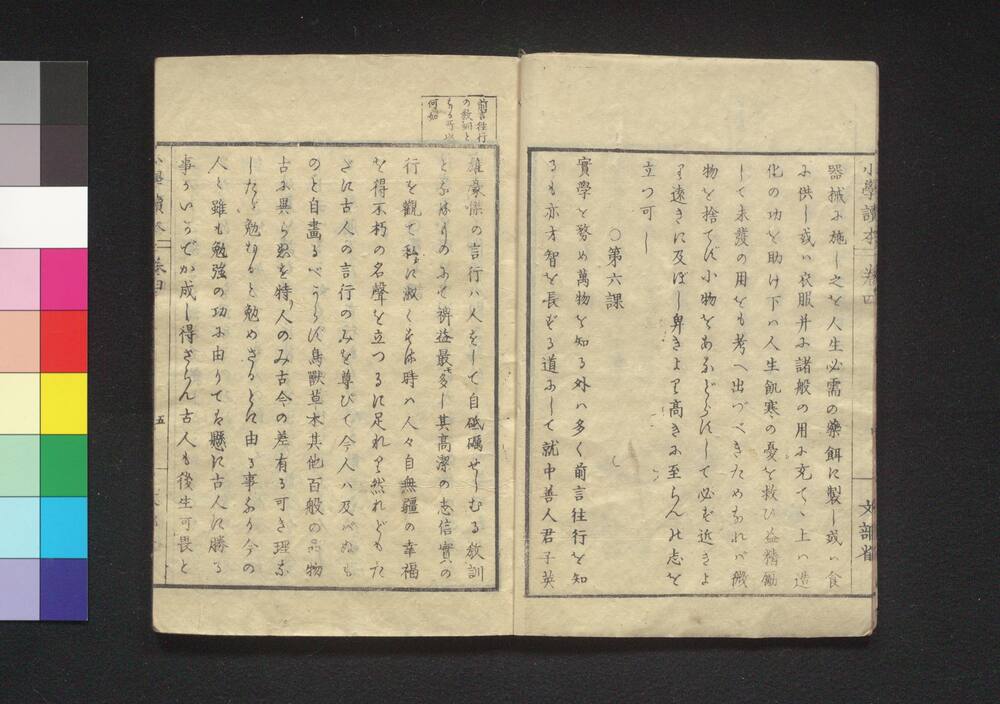 小學讀本 卷四
文部省
器械に施し之を人生必需の藥餌に製し或ハ食
に供し或ハ衣服幷に諸般の用に充て、上ハ造
化の功を助け下ハ人生飢寒の憂を救ひ益精勵
して未發の用をも考へ出づべきためなれバ微
物を捨てず小物をあなどらずして必ず近きよ
り遠きに及ぼし卑きより高きに至らんの志を
立つ可し
○第六課
實學を務め萬物を知る外ハ多く前言往行を知
るも亦才智を長ずる道にして就中善人君子英
前言往行
の教訓と
何如
雄豪傑の言行ハ人をして自砥礪せしむる教訓
となほものにて裨益最多し其高潔の志信實の
行を觀て私に淑くする時ハ人々自無疆の幸福
を得不朽の名聲を立つるに足れり然れどもた
だに古人の言行のみを尊びて今人ハ及べぬも
のと自畵るべからず鳥獸草木其他百般の品物
古に異らぬを特人のみ古今の差有る可き理な
したゞ勉むると勉めざるとに由る事なり今の
人と雖も勉強の功に由りてハ懸に古人に勝る
事がいかでか成し得ざらん古人も後生可畏と
小學讀本 卷四
五